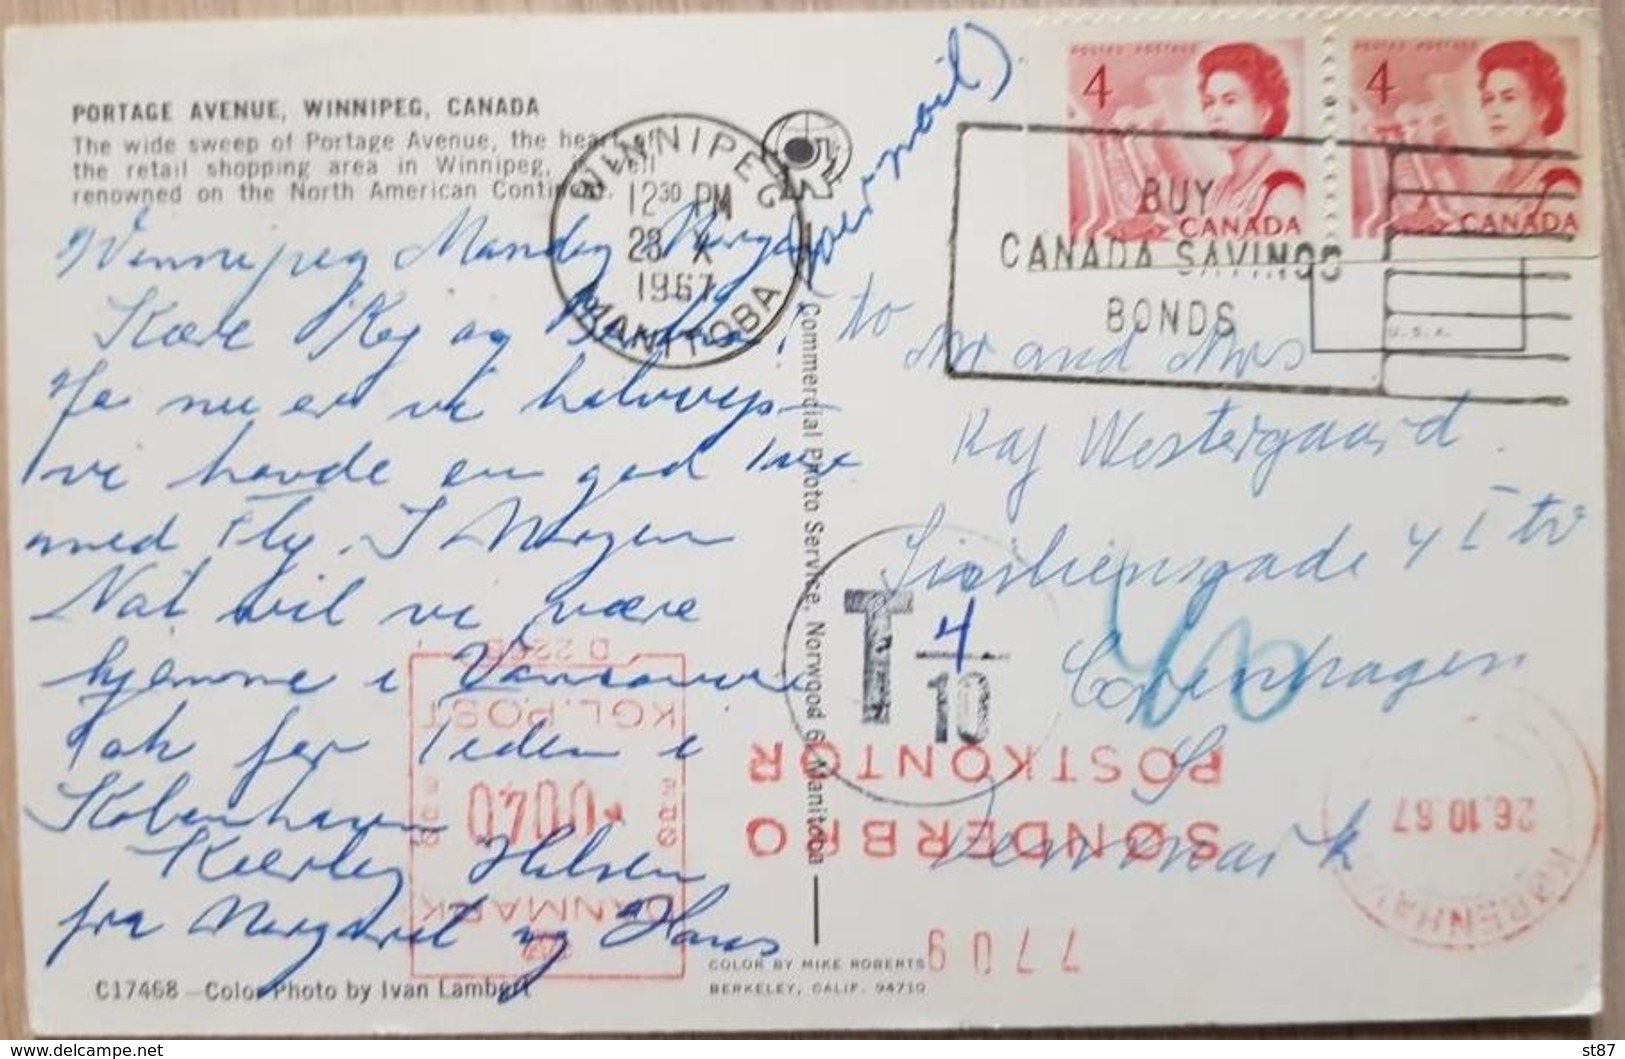 PORTAGE AVENUE, WINNIPEG, CANADA
The wide sweep of Portage Avenue, the heart of
the retail shopping area in Winnipeg, is well
renowned on the North American Continent.
WINNIPEG
12 30 PM
23 X
1967
MANITOBA
BUY
CANADA SAVINGS
BONDS
POSTES POSTAGE
4
CANADA
POSTES POSTAGE
4
CANADA
U.S.A.
Winnipeg Mandag Morgen
Kære Kaj og
Ja nu er vi halvvejs
vi havde en god
med Fly. I Morgen
Nat vil vi være
hjemme i Vancouver
Tak for Tiden i
København
Kærlig Hilsen
fra Margaret og Hans
(per mail)
to
Mr and Mrs
Kaj Westergaard.
4 I tv
Copenhagen
S
Denmark
T 4/10
40
D 22
KGL. POST
0040
DANMARK
SØNDERBRO
POSTKONTOR
26.10.67
KØBENHAVN
7709
Commercial Photo Service, Norwood 6, Manitoba
COLOR BY MIKE ROBERTS
BERKELEY, CALIF. 94710
C17468 — Color Photo by Ivan Lambert
www.delcampe.net
st87